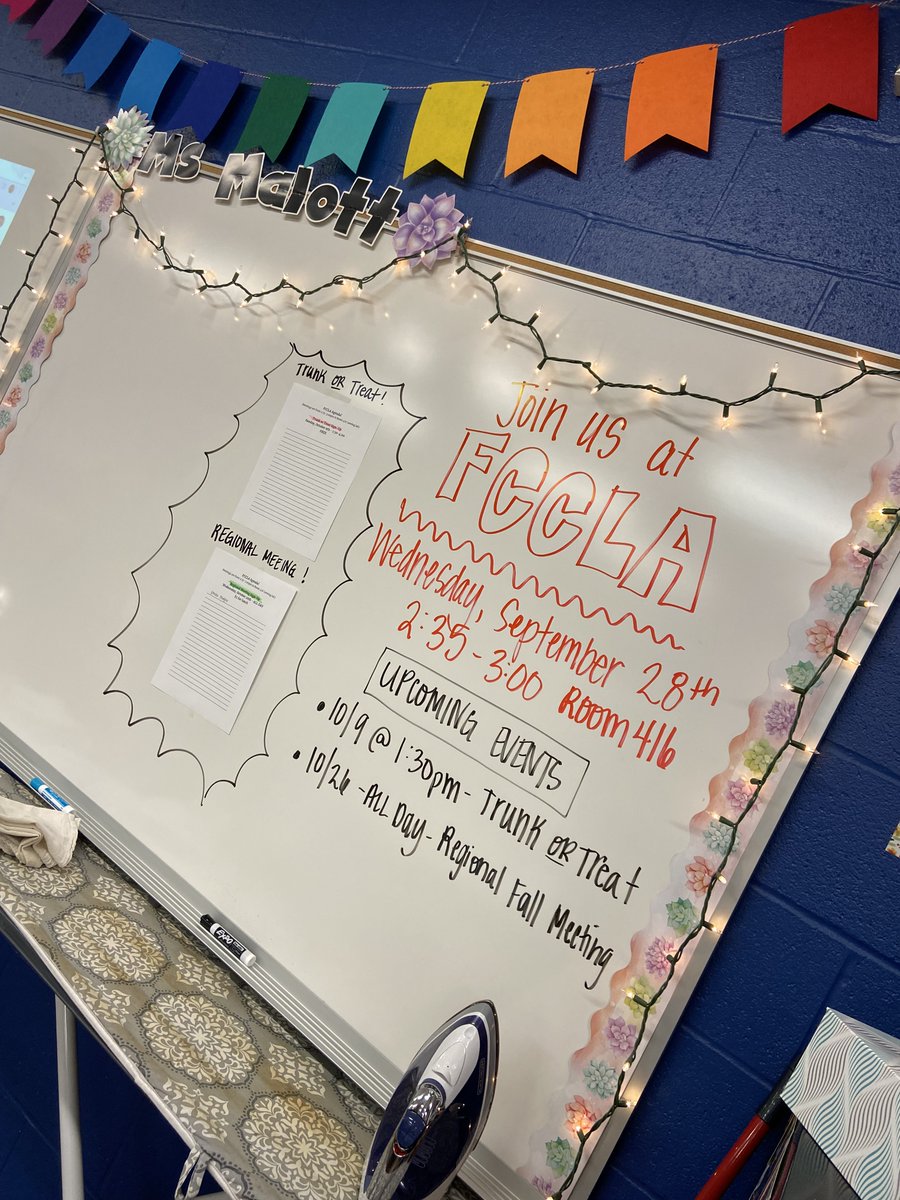 Ms Malott
Trunk or Treat!
FCCLA Agenda!
REGIONAL MEEING!
FCCLA Agenda!
Join us at
FCCLA
Wednesday, September 28th
2:35 - 3:00 Room 416
UPCOMING EVENTS
• 10/9 @ 1:30pm - Trunk or Treat
• 10/26 - All Day - Regional Fall Meeting
EXPO